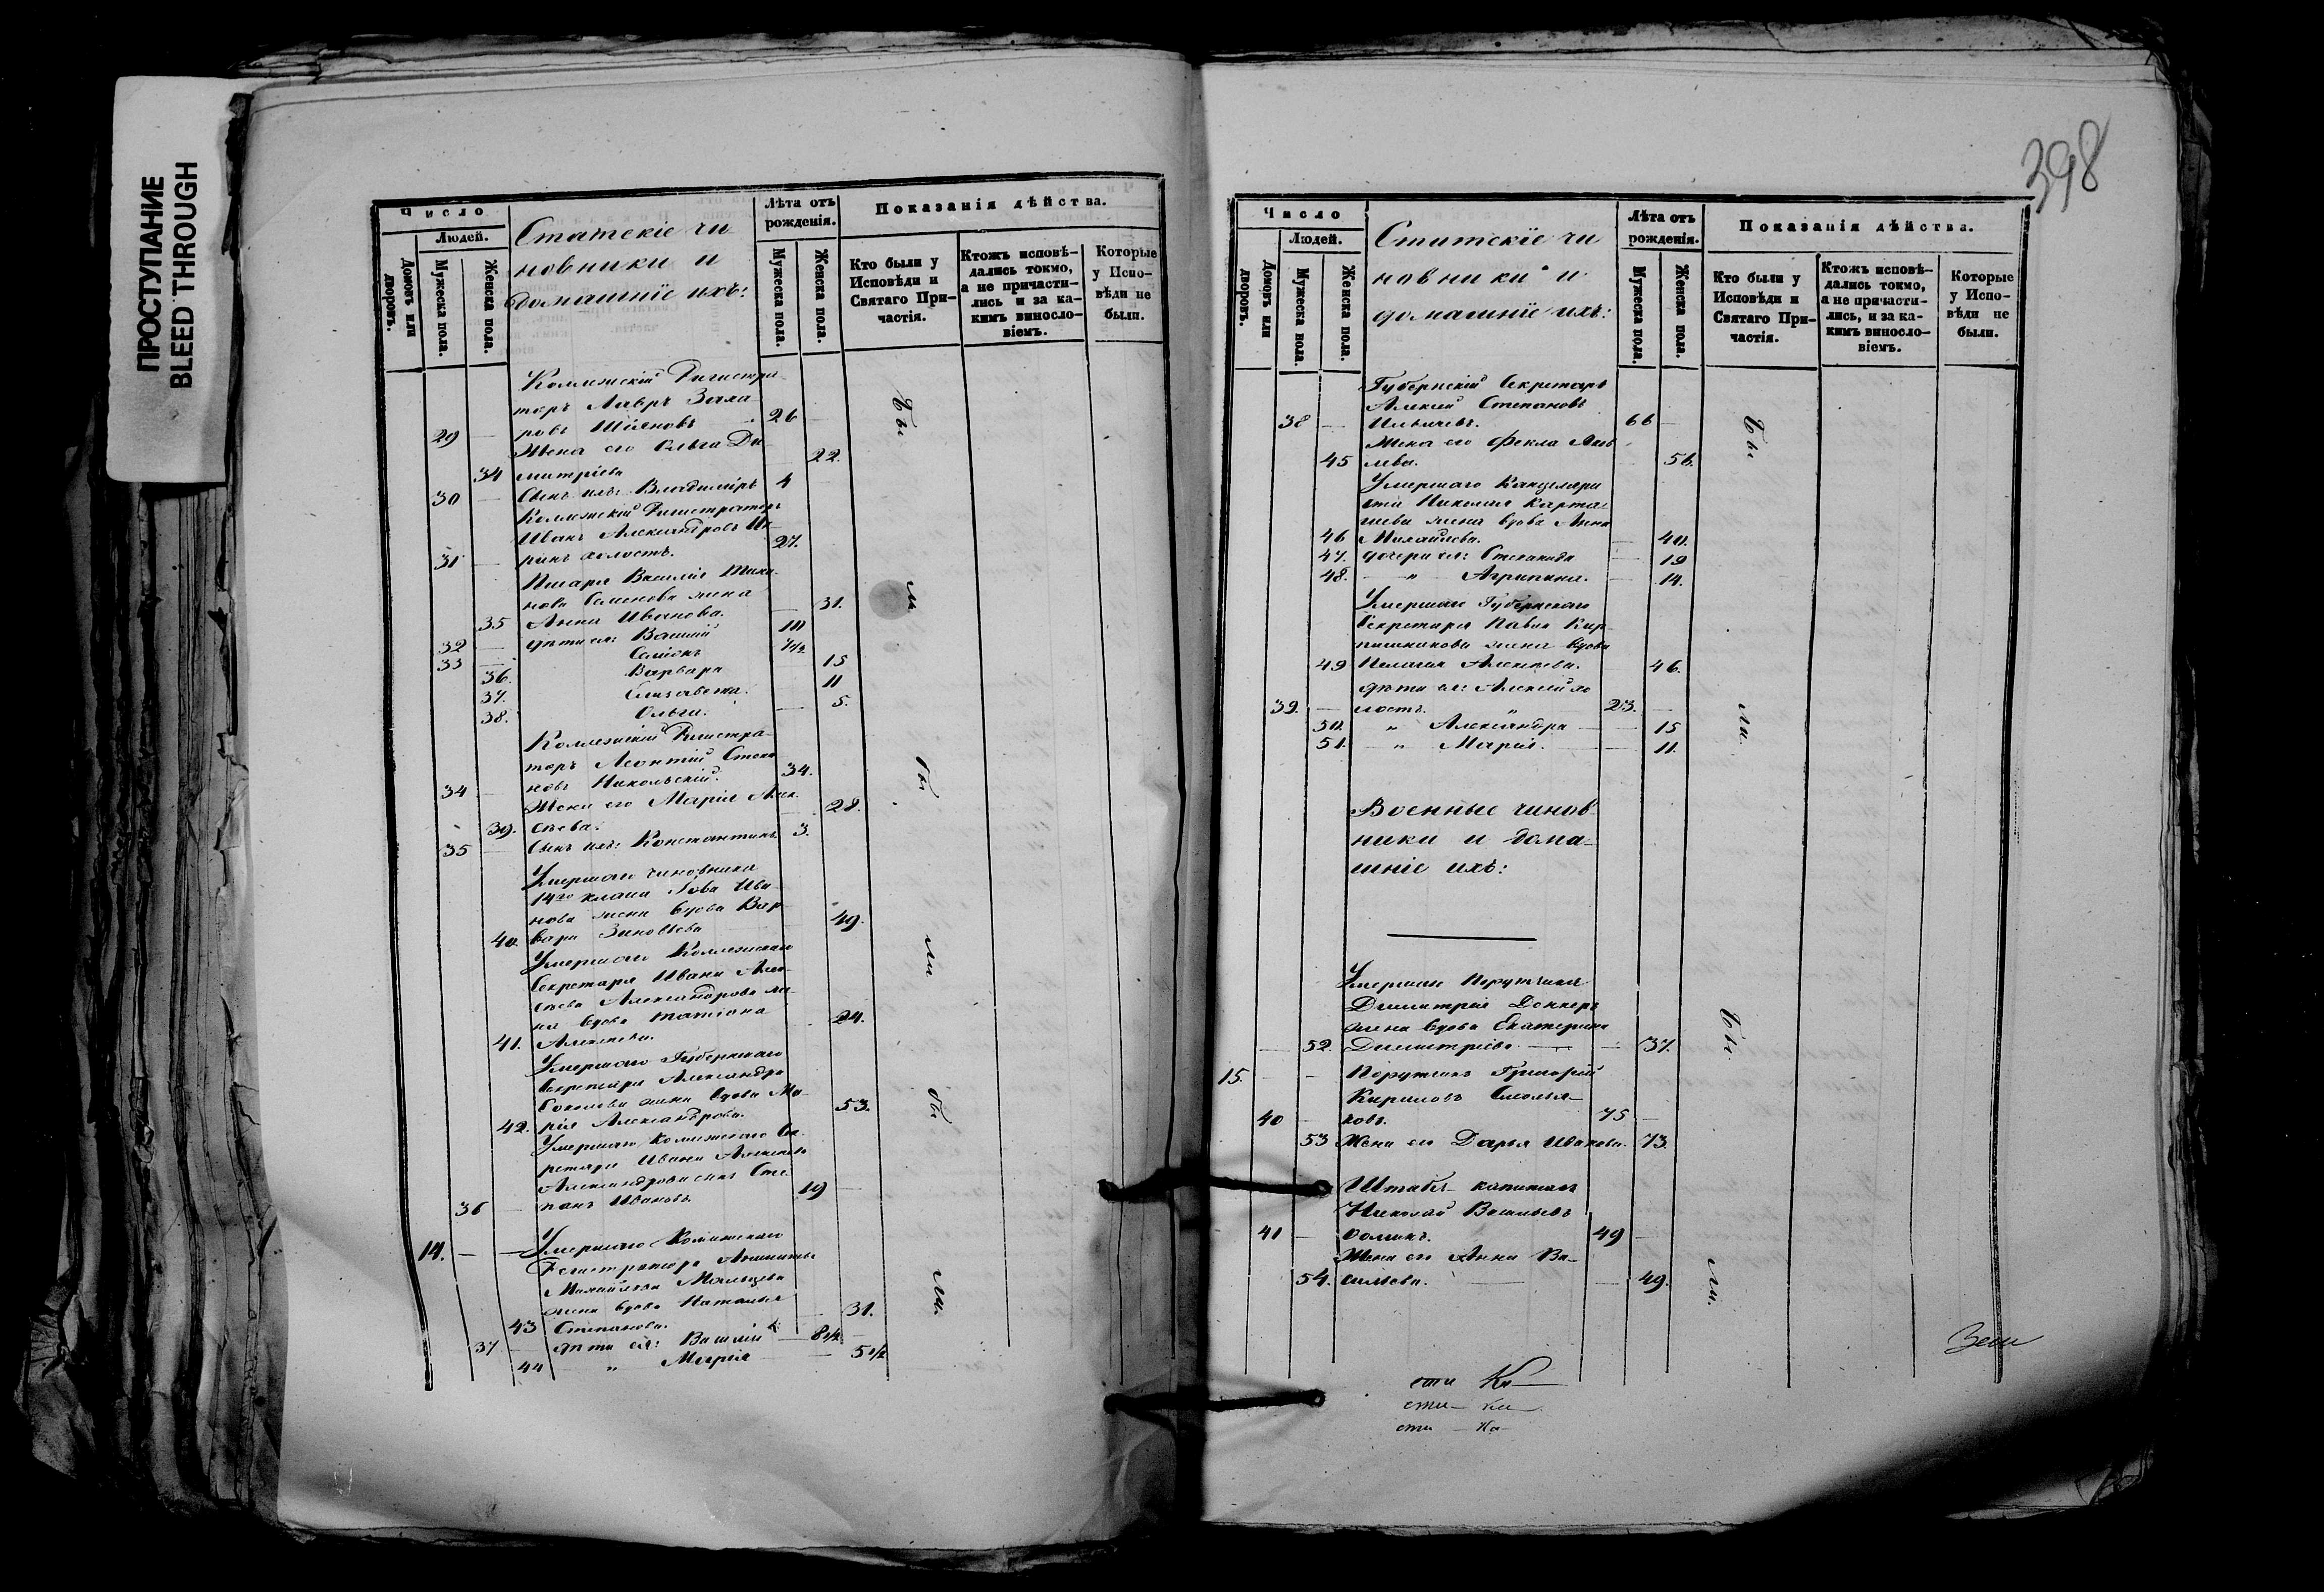 ПРОСТУПАНИЕ
BLEED THROUGH
Число
Людей.
Домовъ или дворовъ.
Мужеска пола.
Женска пола.
Статскіе чи
новники и
домашніе ихъ:
Лѣта отъ рожденія.
Мужеска пола.
Женска пола.
Показанія дѣйства.
Кто были у Исповѣди и Святаго При-частія.
Ктожъ исповѣ-дались токмо, а не причасти-лись и за ка-кимъ винословіемъ.
Которые у Испо-вѣди не были.
Коллежскій Регистра
торъ Лавръ Заха
29 — ровъ 26 —
Жена его Ольга Ди
34 митріева 22.
30 — Сынъ ихъ: Владиміръ 4
Коллежскій Регистраторъ
Иванъ Александровъ
31 — холостъ. 27.
Писаря Василія
нова Семенова жена
35 Анна Иванова. — 31.
32 — дѣти ея: Василій 10
33 — Семіонъ 7 1/2
36. Варвара 15
37. Елизавета. 11
38. Ольга. — 5.
Коллежскій Регистра-
торъ Леонтій Степа
34 — новъ Никольскій. 34.
Жена его Марія Алек
39. сѣева. 28.
35 — Сынъ ихъ: Константинъ 3.
Умершаго чиновника
14го класа Льва Ива
нова жена вдова Вар
40. вара Зиновьева 49.
Умершаго Коллежскаго
Секретаря Ивана Алек
сѣева Александрова же
на вдова Татіана
41. Алексѣева. 24.
Умершаго Губернскаго
Секретаря Александра
Соколова жена вдова Ма-
42. рія Александрова. 53.
Умершаго Коллежскаго Сек
ретаря Ивана Алексѣева
Александрова сынъ Сте
36 — панъ Ивановъ 19 —
14. — — Умершаго Коллежскаго
Регистратора
Михайлова Мальцева
жена вдова Наталья
43 Степанова. — 31.
37 — дѣти ея: Василій — 8 1/2 —
44 „ Марія — 5 1/2
Бы
ли
бы
ли
бы
ли.
398
Число
Людей.
Домовъ или дворовъ.
Мужеска пола.
Женска пола.
Статскіе чи
новники и
домашніе ихъ:
Лѣта отъ рожденія.
Мужеска пола.
Женска пола.
Показанія дѣйства.
Кто были у Исповѣди и Святаго При-частія.
Ктожъ исповѣ-дались токмо, а не причасти-лись, и за ка-кимъ винословіемъ.
Которые у Испо-вѣди не были.
Губернскій Секретарь
Алексѣй Степановъ
38 — Ильичевъ. 66 —
Жена его Фекла Яков
45 лева. — 56.
Умершаго Канцеляри
ста Николая Карта
шева жена вдова Анна
46 Михайлова. — 40.
47. дочери ея: Степанида — 19
48. — „ Агрипина. — 14.
Умершаго Губернскаго
Секретаря Павла Кир
пишникова жена вдова
49 Пелагия Алексѣева. — 46.
дѣти ея: Алексѣй хо
39. — лостъ. „ 23. —
50. „ Александра — 15
51. — „ Марія. — 11.
Военные чинов
ники и дома-
шніе ихъ:
Умершаго Порутчика
Димитрія Доккеръ
жена вдова Екатерина
— 52. Димитріева — — 37.
15. — — Порутчикъ Григорій
Кириловъ Смолья-
40 — ковъ. 75 —
53 Жена его Дарья Иванова. 73.
Штабъ-капитанъ
Николай Васильевъ
41 — 49 —
Жена его Анна Ва-
54. сильева. — — 49.
Бы
ли.
Бы
ли.
сти Ка
сти — ка
сти — ка